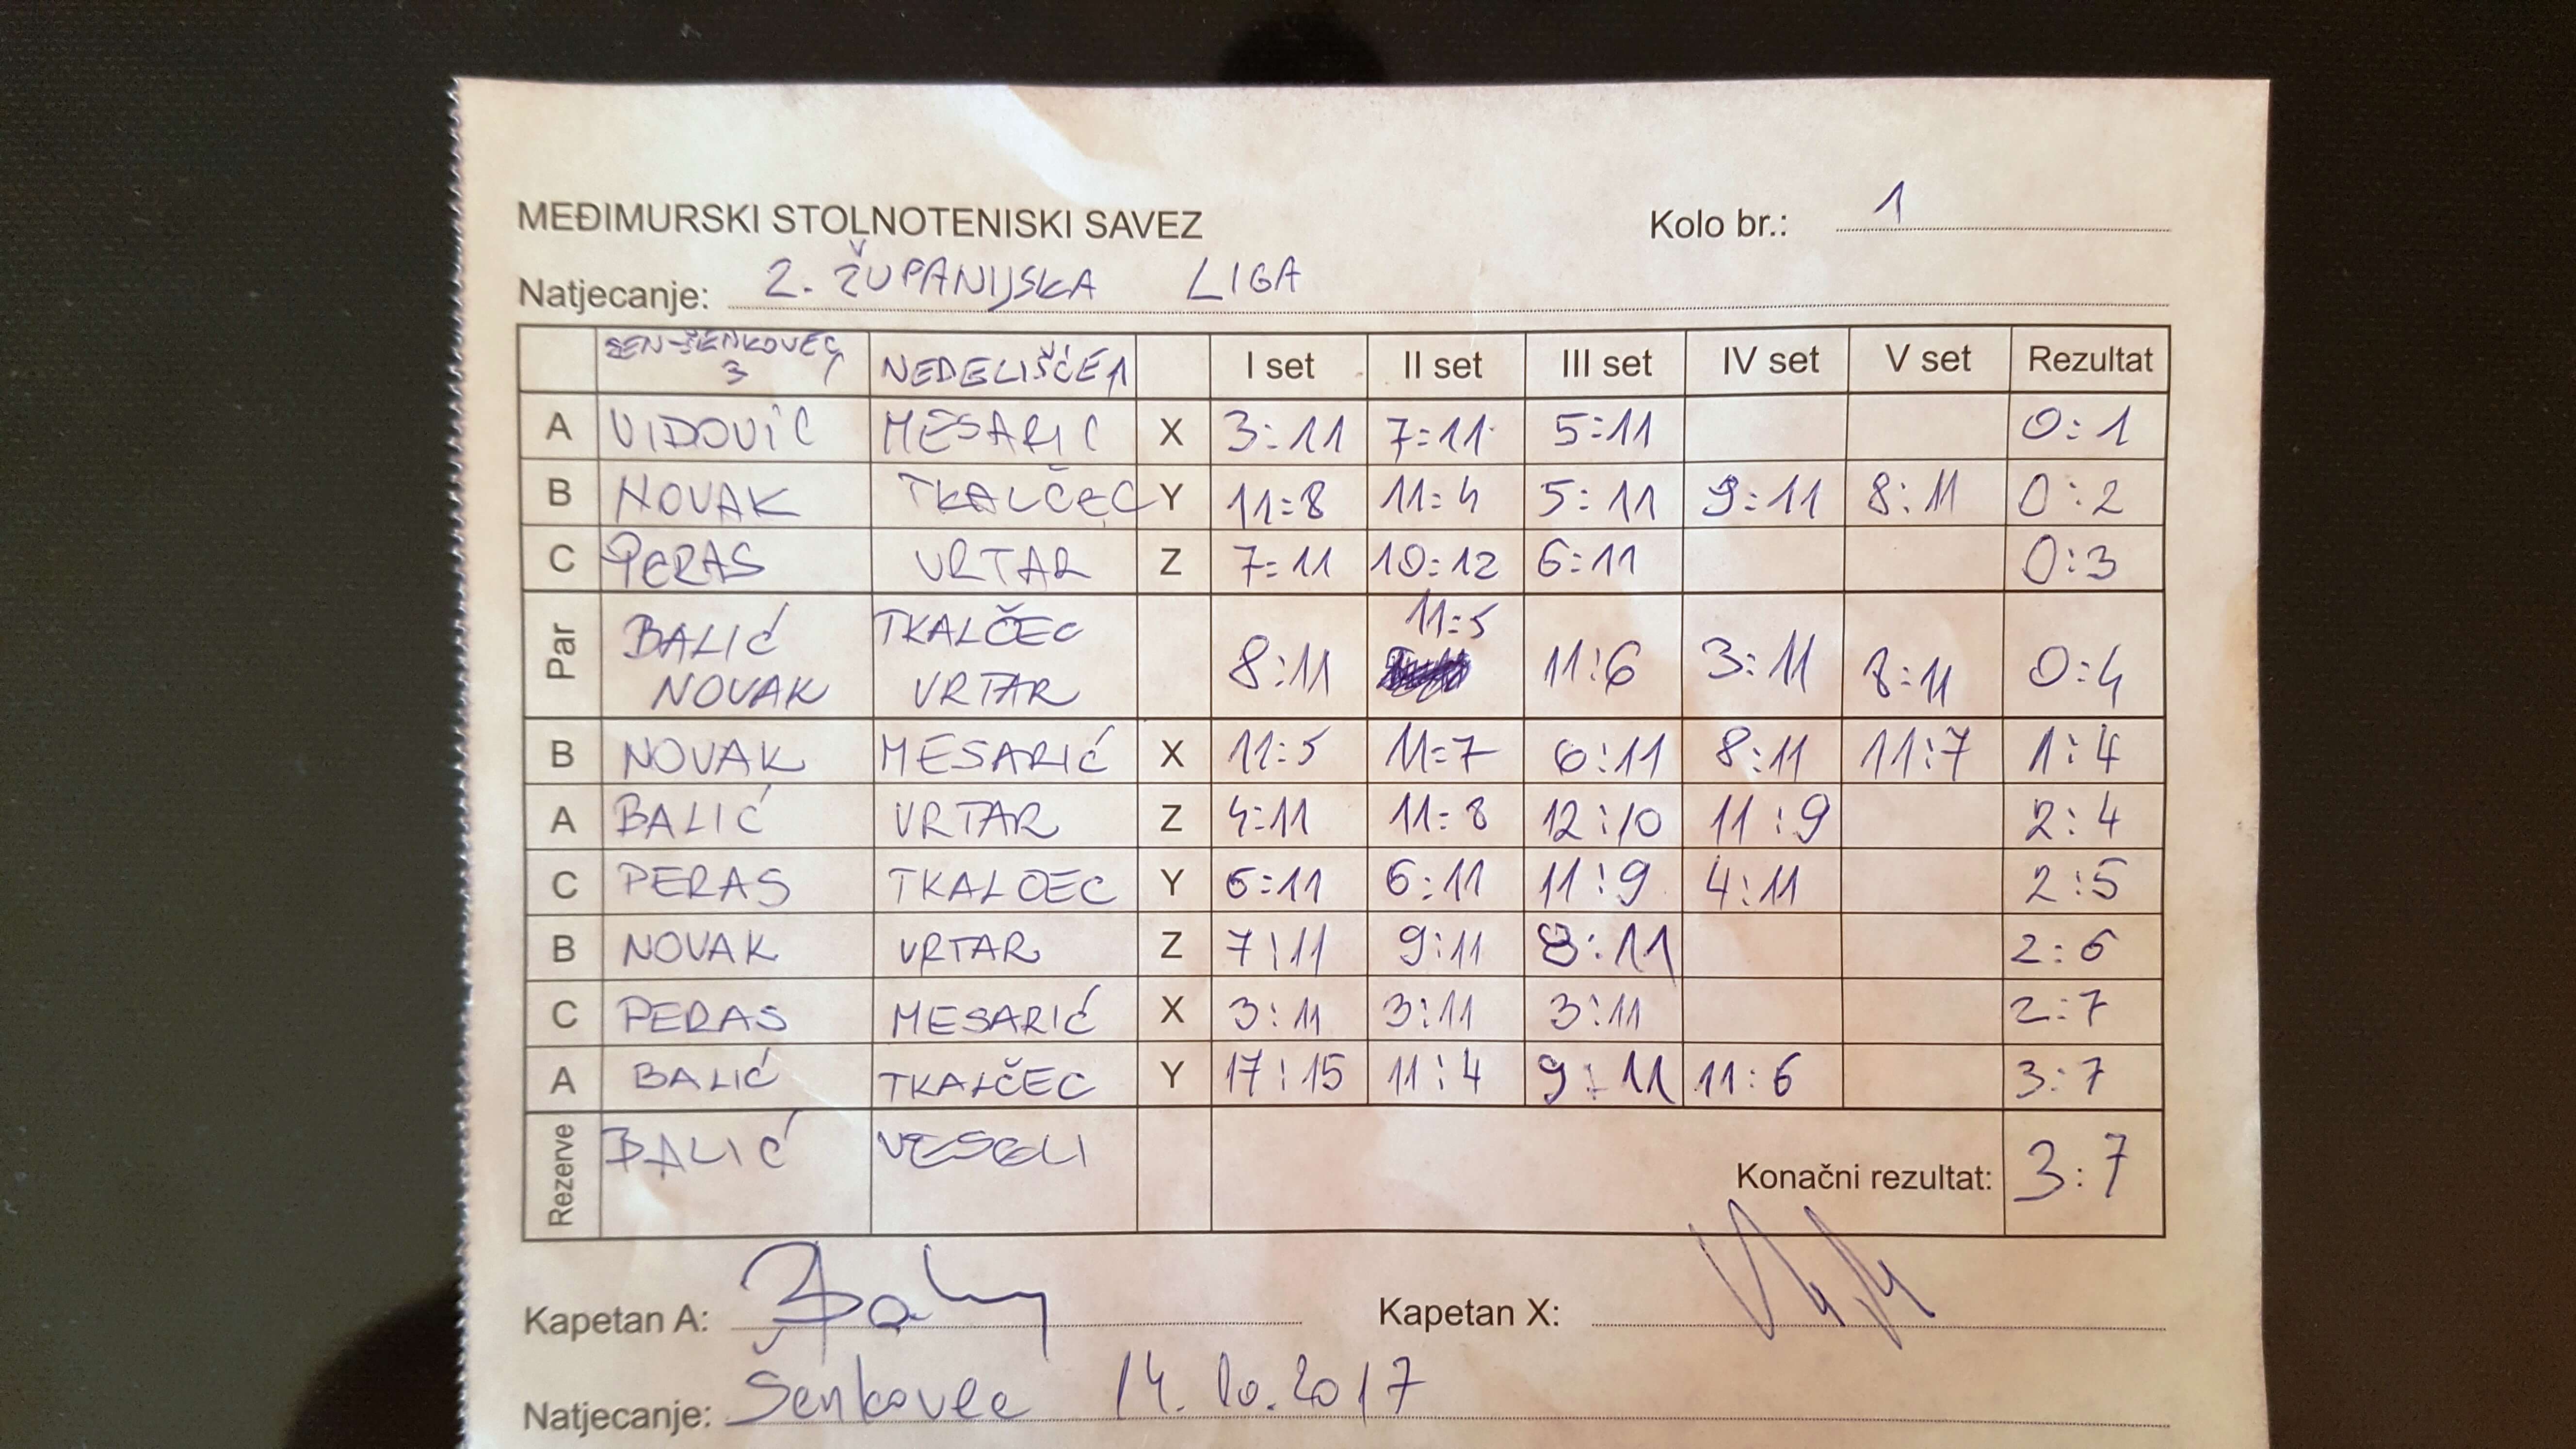 MEĐIMURSKI STOLNOTENISKI SAVEZ Kolo br.: 1
Natjecanje: 2. ŽUPANIJSKA LIGA
SEN-ŠENKOVEC, 3 NEDELIŠĆE 1 I set II set III set IV set V set Rezultat
A VIDOVIĆ MESARIC X 3:11 7=11 5=11 0:1
B NOVAK TKALČEC Y 11=8 11=4 5:11 9:11 8:11 0:2
C PERAS VRTAR Z 7=11 10:12 6:11 0:3
Par BALIĆ NOVAK TKALČEC VRTAR 8:11 11=5 11:6 3:11 8:11 0:4
B NOVAK MESARIĆ X 11=5 11=7 6:11 8:11 11:7 1:4
A BALIĆ VRTAR Z 4:11 11=8 12:10 11:9 2:4
C PERAS TKALOEC Y 6=11 6:11 11:9 4:11 2:5
B NOVAK VRTAR Z 7:11 9:11 8:11 2:6
C PERAS MESARIĆ X 3:11 3:11 3:11 2:7
A BALIĆ TKALČEC Y 17:15 11:4 9:11 11:6 3:7
Rezerve BALIĆ VESELI Konačni rezultat: 3:7
Kapetan A: Kapetan X:
Natjecanje: Šenkovec 14.10.2017